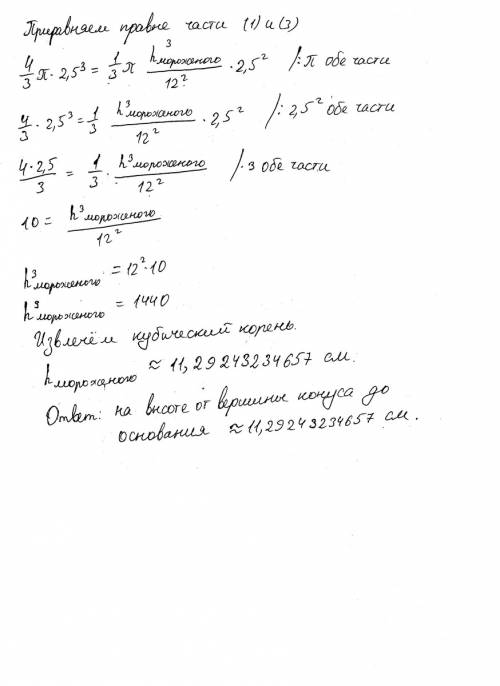 Приравняем правые части (1) и (3)
4/3 π · 2,5³ = 1/3 π h³мороженого/12² · 2,5² /: π обе части
4/3 · 2,5³ = 1/3 h³мороженого/12² · 2,5² /: 2,5² обе части
4·2,5/3 = 1/3 · h³мороженого/12² /·3 обе части
10 = h³мороженого/12²
h³мороженого = 12²·10
h³мороженого = 1440
Извлечём кубический корень.
hмороженого ≈ 11,29243234657 см.
Ответ: на высоте от вершины конуса до
основания ≈ 11,29243234657 см.